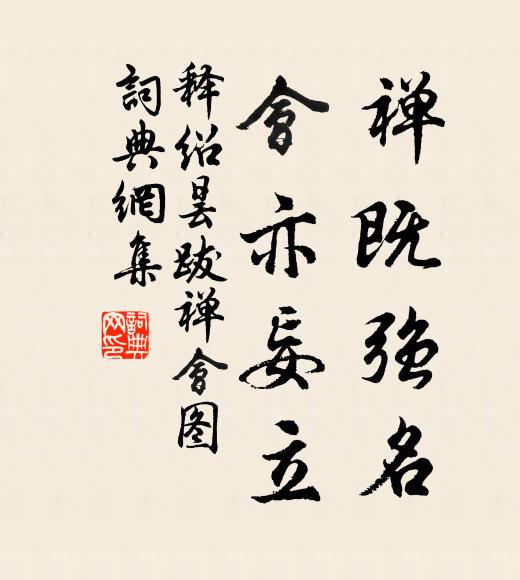 禅既强名
會亦妄立
释绍昙跋禅會图
詞典網集
詞典網印